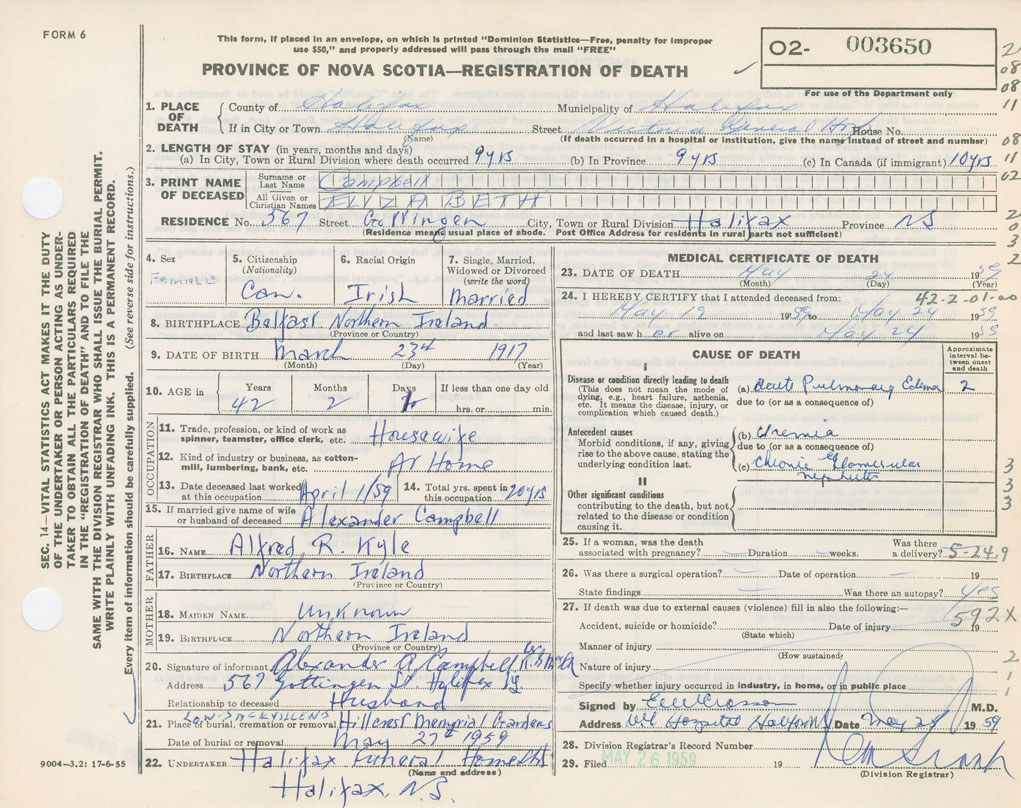 FORM 6
This form, if placed in an envelope, on which is printed "Dominion Statistics—Free, penalty for improper
use $50," and properly addressed will pass through the mail "FREE"
PROVINCE OF NOVA SCOTIA—REGISTRATION OF DEATH
O2- 003650
For use of the Department only
1. PLACE OF DEATH County of Halifax Municipality of Halifax
If in City or Town Halifax Street Victoria General Hosp House No.
(Name) (If death occurred in a hospital or institution, give the name instead of street and number)
2. LENGTH OF STAY (in years, months and days)
(a) In City, Town or Rural Division where death occurred 9 yrs (b) In Province 9 yrs (c) In Canada (if immigrant) 10 yrs
3. PRINT NAME OF DECEASED Surname or Last Name Campbell
All Given or Christian Names ELIZABETH
RESIDENCE No. 567 Street Gottingen City, Town or Rural Division Halifax Province NS
(Residence means usual place of abode. Post Office Address for residents in rural parts not sufficient)
4. Sex Female
5. Citizenship (Nationality) Can.
6. Racial Origin Irish
7. Single, Married, Widowed or Divorced (write the word) Married
8. BIRTHPLACE Belfast Northern Ireland
(Province or Country)
9. DATE OF BIRTH March 23rd 1917
(Month) (Day) (Year)
10. AGE in Years 42 Months 2 Days 1 If less than one day old
hrs. or min.
OCCUPATION
11. Trade, profession, or kind of work as spinner, teamster, office clerk, etc. Housewife
12. Kind of industry or business, as cotton-mill, lumbering, bank, etc. At Home
13. Date deceased last worked at this occupation April 1/59 14. Total yrs. spent in this occupation 20 yrs
15. If married give name of wife or husband of deceased Alexander Campbell
FATHER
16. NAME Alfred R. Kyle
17. BIRTHPLACE Northern Ireland
(Province or Country)
MOTHER
18. MAIDEN NAME Unknown
19. BIRTHPLACE Northern Ireland
(Province or Country)
20. Signature of informant Alexander A Campbell
Address 567 Gottingen St. Halifax
Relationship to deceased Husband
21. Place of burial, cremation or removal Hillcrest Memorial Gardens
Date of burial or removal May 27th 1959
22. UNDERTAKER Halifax Funeral Home
(Name and address)
Halifax, N.S.
9004-3.2: 17-6-55
MEDICAL CERTIFICATE OF DEATH
23. DATE OF DEATH May 24 1959
(Month) (Day) (Year)
24. I HEREBY CERTIFY that I attended deceased from: 42-2-01-00
May 19 1959 to May 24 1959
and last saw her alive on May 24 1959
CAUSE OF DEATH
Approximate interval between onset and death
I
Disease or condition directly leading to death (a) Acute Pulmonary Edema 2
(This does not mean the mode of dying, e.g., heart failure, asthenia, etc. It means the disease, injury, or complication which caused death.) due to (or as a consequence of)
Antecedent causes (b) Uremia
Morbid conditions, if any, giving rise to the above cause, stating the underlying condition last. due to (or as a consequence of)
(c) Chronic Glomerular nephritis
II
Other significant conditions contributing to the death, but not related to the disease or condition causing it.
25. If a woman, was the death associated with pregnancy? Duration weeks. Was there a delivery? 5-24.9
26. Was there a surgical operation? Date of operation 19
State findings Was there an autopsy? yes
27. If death was due to external causes (violence) fill in also the following:—
Accident, suicide or homicide? Date of injury 19 592X
(State which)
Manner of injury
(How sustained)
Nature of injury
Specify whether injury occurred in industry, in home, or in public place
Signed by M.D.
Address V.G. Hospital Halifax NS Date May 25 1959
28. Division Registrar's Record Number
29. Filed MAY 26 1959 19
(Division Registrar)
SEC. 14—VITAL STATISTICS ACT MAKES IT THE DUTY
OF THE UNDERTAKER OR PERSON ACTING AS UNDER-
TAKER TO OBTAIN ALL THE PARTICULARS REQUIRED
IN THE "REGISTRATION OF DEATH" AND TO FILE THE
SAME WITH THE DIVISION REGISTRAR WHO SHALL ISSUE THE BURIAL PERMIT.
WRITE PLAINLY WITH UNFADING INK. THIS IS A PERMANENT RECORD.
Every item of information should be carefully supplied. (See reverse side for instructions.)
2
08
08
11
08
11
02
2
0
3
2
3
3
3
2
1
1